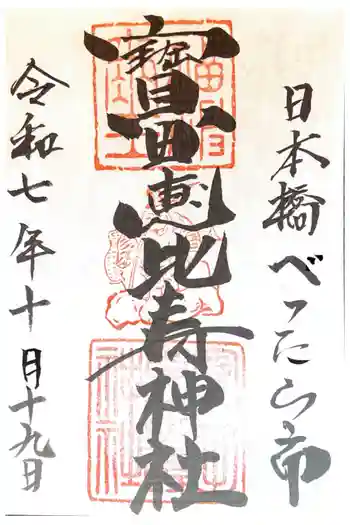 日本橋べったら市
寳田恵比寿神社
令和七年十月十九日